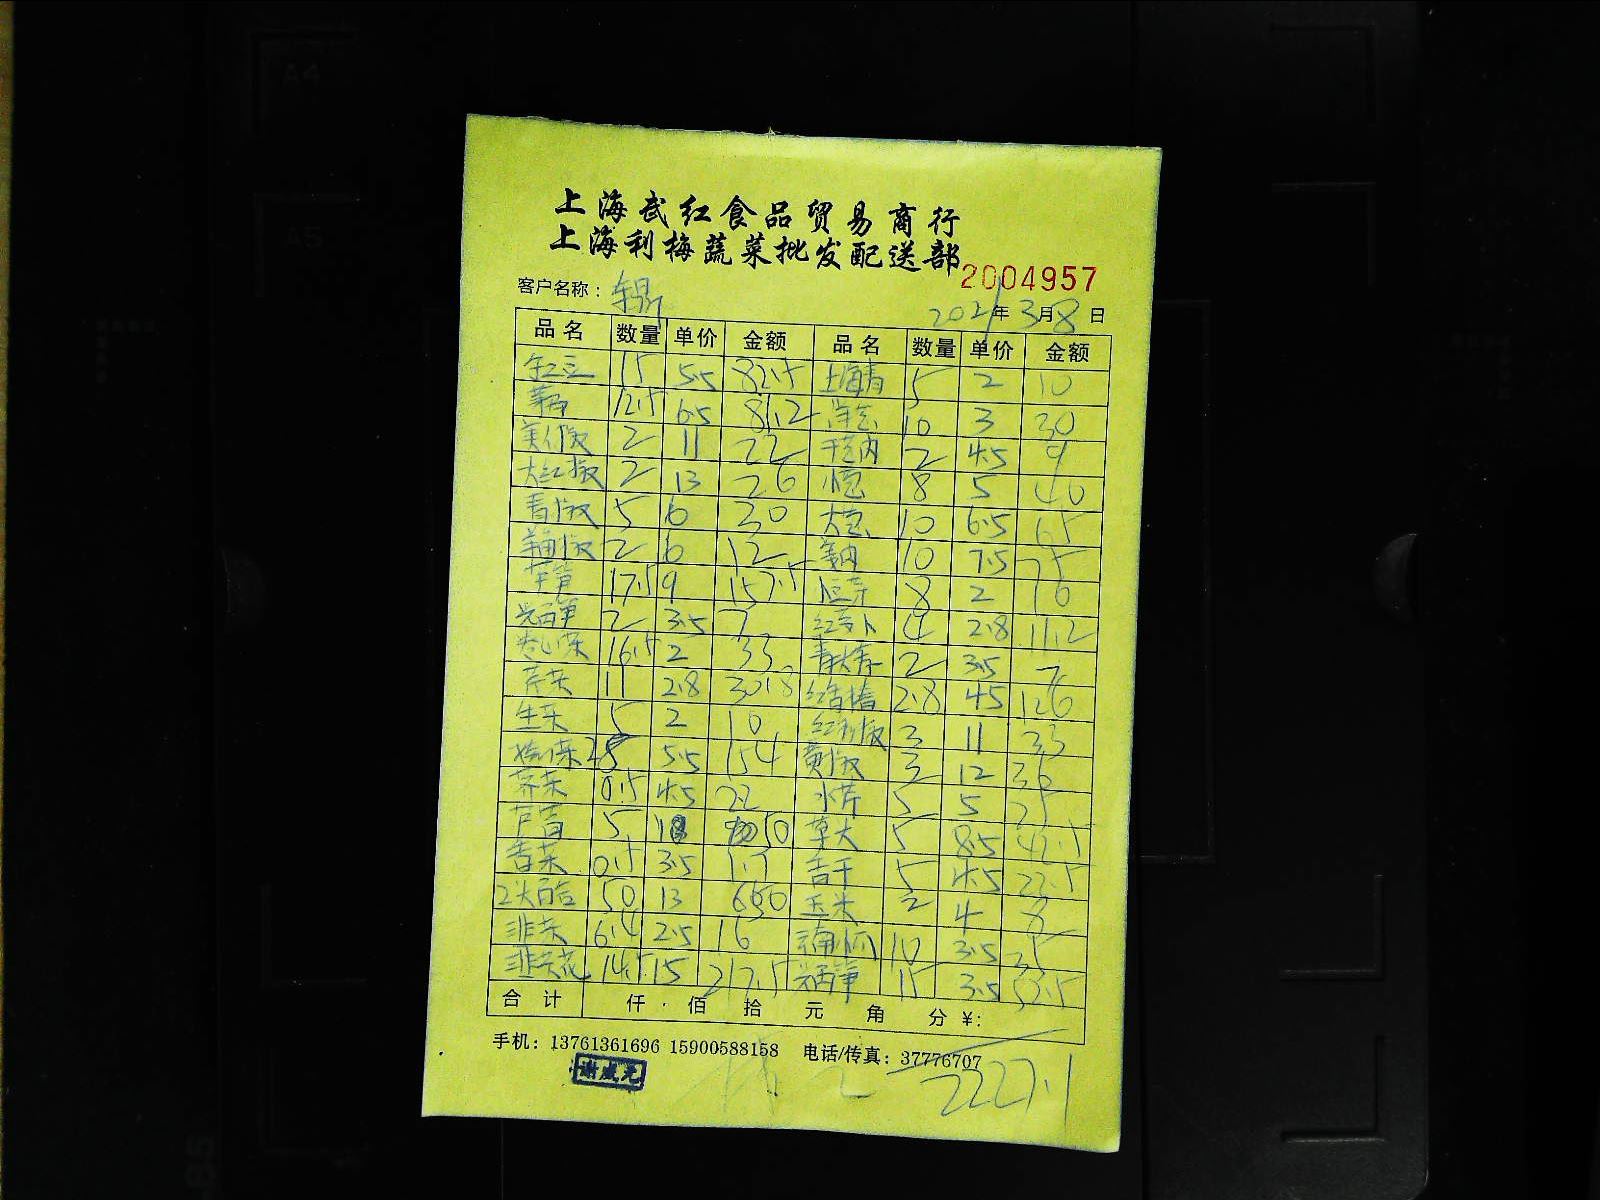 上海武红食品贸易商行
上海利梅蔬菜批发配送部
2004957
客户名称：
2021年3月8日
品名 数量 单价 金额 品名 数量 单价 金额
红豆 15 5.5 82.5 上海青 5 2 10
12.5 6.5 81.2 洋芋 10 3 30
美人椒 2 11 22 2 4.5 9
大红椒 2 13 26 8 5 40
青椒 5 6 30 大葱 10 6.5 65
羊角椒 2 6 12 姜肉 10 7.5 75
17.5 9 157.5 8 2 16
2 3.5 7 红萝卜 4 2.8 11.2
卷心菜 16.5 2 33 2 3.5 7
芹菜 11 2.8 30.8 红香椿 2.8 45 126
生菜 5 2 10 3 11 33
28 5.5 154 黄椒 3 12 36
荠菜 0.5 4.5 2.2 水芹 5 5 25
芦蒿 5 10 50 草头 5 8.5 42.5
香菜 0.5 3.5 1.7 香干 5 4.5 22.5
2头百合 50 13 650 玉米 2 4 8
韭菜 6.4 2.5 16 10 3.5 35
韭菜花 14.5 15 217.5 15 3.5 52.5
合计 仟 佰 拾 元 角 分 ¥:
手机：13761361696 15900588158 电话/传真：37776707
谢盛元
2227.1